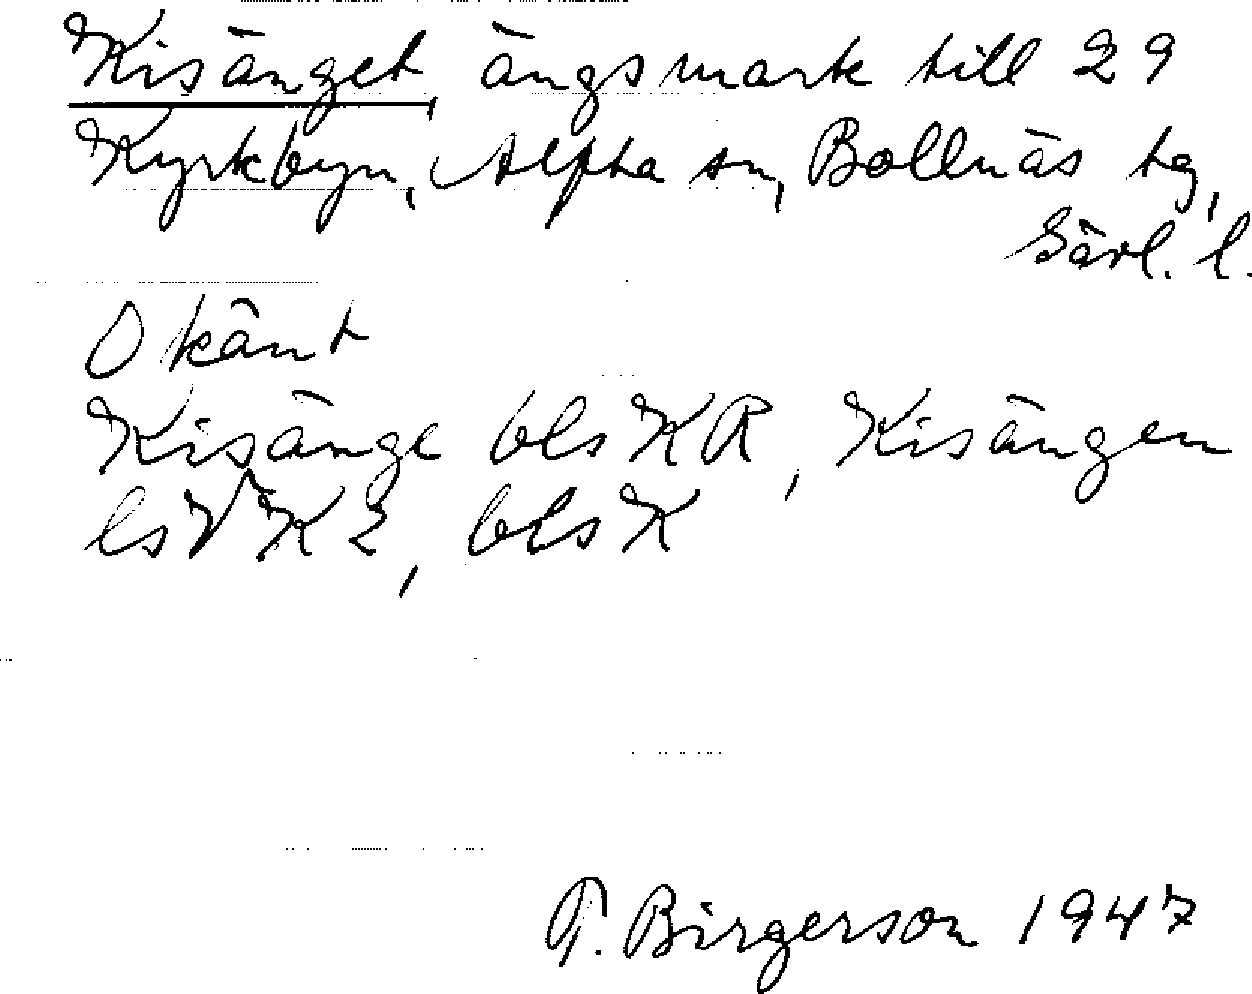 Kisänget, ängsmark till 29
Kyrkbyn, Alfta sn, Bollnäs tg,
Gävl. l.
Okänt
Kisänge bls KR, Kisängen
ls V K2, bls K
T. Birgerson 1947